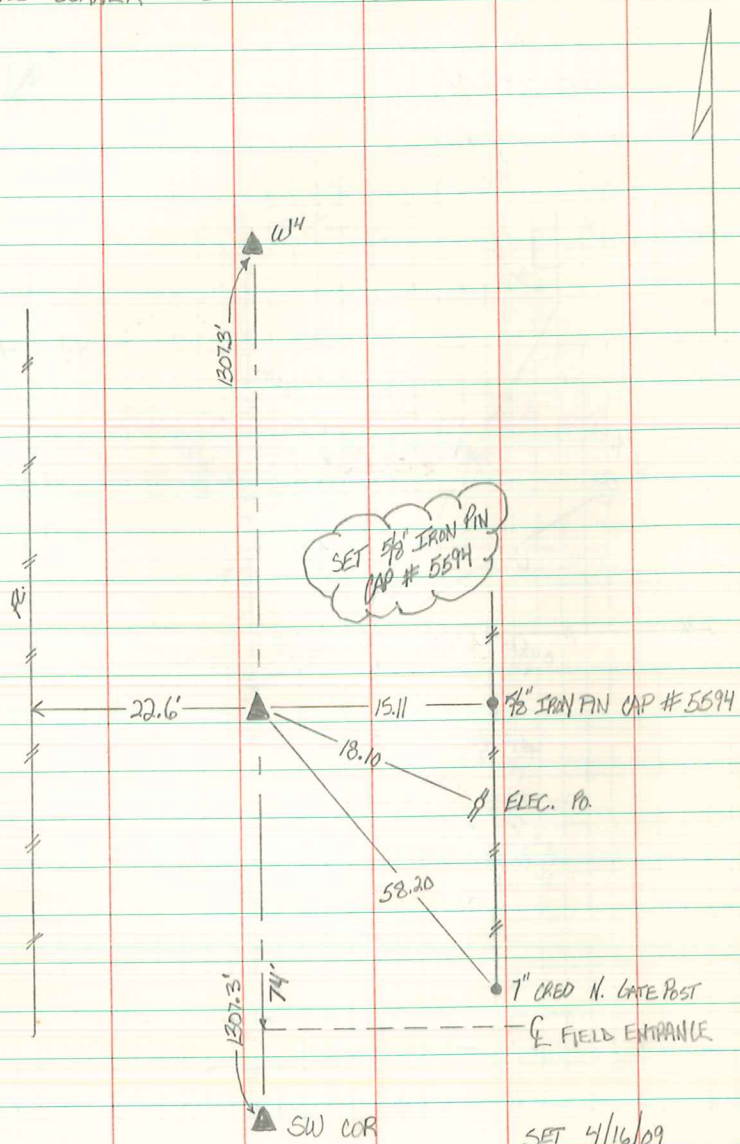 CORNER
W¼
1307.3'
SET 5/8" IRON PIN
CAP # 5594
22.6'
15.11
5/8" IRON PIN CAP # 5594
18.10
ELEC. PO.
58.20
7" CREO N. GATE POST
1307.3'
74'
℄ FIELD ENTRANCE
SW COR
SET 4/16/09